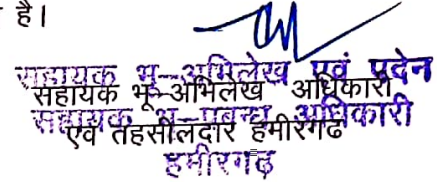 है।
सहायक भू-अभिलेख एवं पदेन
सहायक भू-अभिलेख अधिकारी
सहायक भू-प्रबन्ध अधिकारी
एवं तहसीलदार हमीरगढ
हमीरगढ़